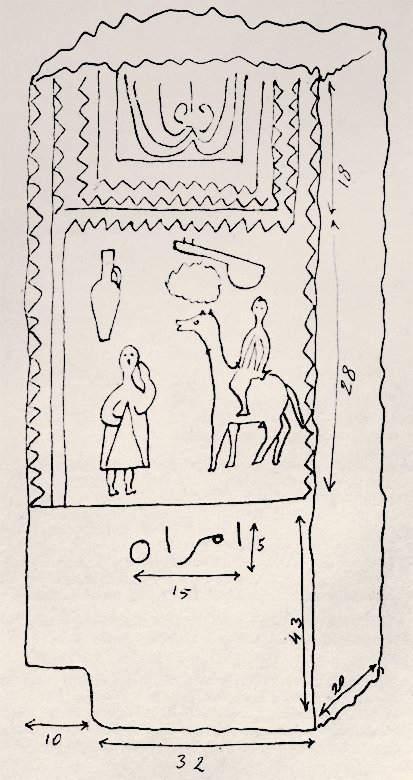 18
28
امراه
5
15
43
20
10
32